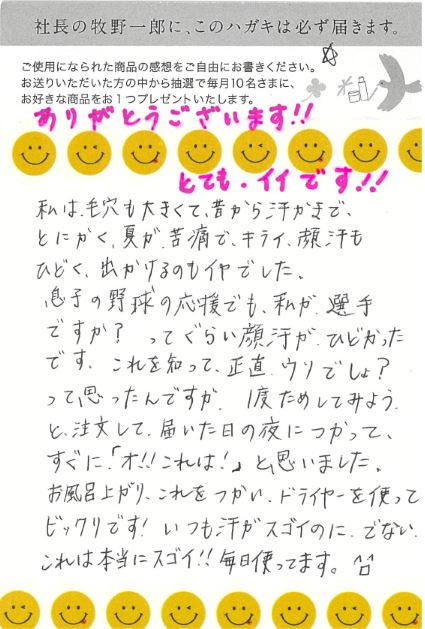 社長の牧野一郎に、このハガキは必ず届きます。
ご使用になられた商品の感想をご自由にお書きください。
お送りいただいた方の中から抽選で毎月10名さまに、
お好きな商品をお1つプレゼントいたします。
ありがとうございます!!
とても・イイです!!
私は、毛穴も大きくて、昔から汗かきで、
とにかく、夏が、苦痛で、キライ、顔汗も
ひどく、出かけるのもイヤでした。
息子の野球の応援でも、私が、選手
ですか? ってぐらい顔汗が、ひどかった
です。これを知って、正直、ウソでしょ?
って思ったんですが、1度ためしてみよう、
と、注文して、届いた日の夜につかって、
すぐに、「オ!!これは!」と、思いました。
お風呂上がり、これをつかい、ドライヤーを使って
ビックリです! いつも汗がスゴイのに、でない、
これは本当にスゴイ!! 毎日使ってます。